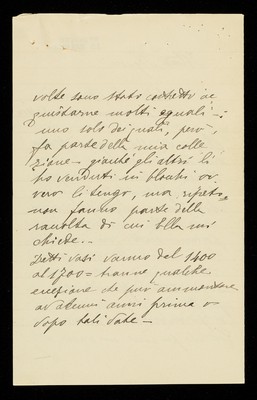 volte sono stato costretto ac
quistarne molti eguali -:
uno solo dei quali, però,
fa parte della mia colle
zione - giacché gli altri li
ho venduti in blocchi ov
vero li tengo, ma, ripeto =
non fanno parte della
raccolta di cui Ella mi
chiede. -
Detti vasi vanno dal 1400
al 1700 = tranne qualche
eccezione che può ammontare
ad alcuni anni prima o
dopo tali date -